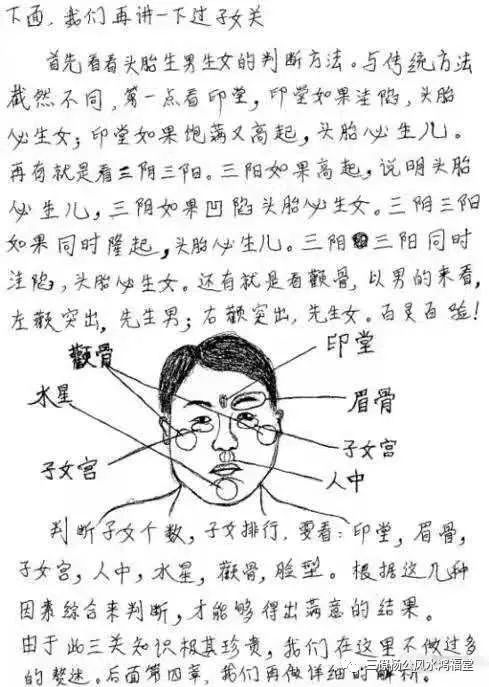 下面，我们再讲一下过子女关
首先看看头胎生男生女的判断方法。与传统方法
截然不同，第一点看印堂，印堂如果洼陷，头胎
必生女；印堂如果饱满又高起，头胎必生儿。
再有就是看三阴三阳。三阳如果高起，说明头胎
必生儿，三阴如果凹陷头胎必生女。三阴三阳
如果同时隆起，头胎必生儿。三阴三阳同时
洼陷，头胎必生女。还有就是看颧骨，以男的来看，
左颧突出，先生男；右颧突出，先生女。百灵百验！
颧骨
印堂
水星
眉骨
子女宫
子女宫
人中
判断子女个数，子女排行，要看：印堂，眉骨，
子女宫，人中，水星，颧骨，脸型。根据这几种
因素综合来判断，才能够得出满意的结果。
由于此三关知识极其珍贵，我们在这里不做过多
的赘述。后面第四章，我们再做详细的解析。
三僚杨公风水鸿福堂